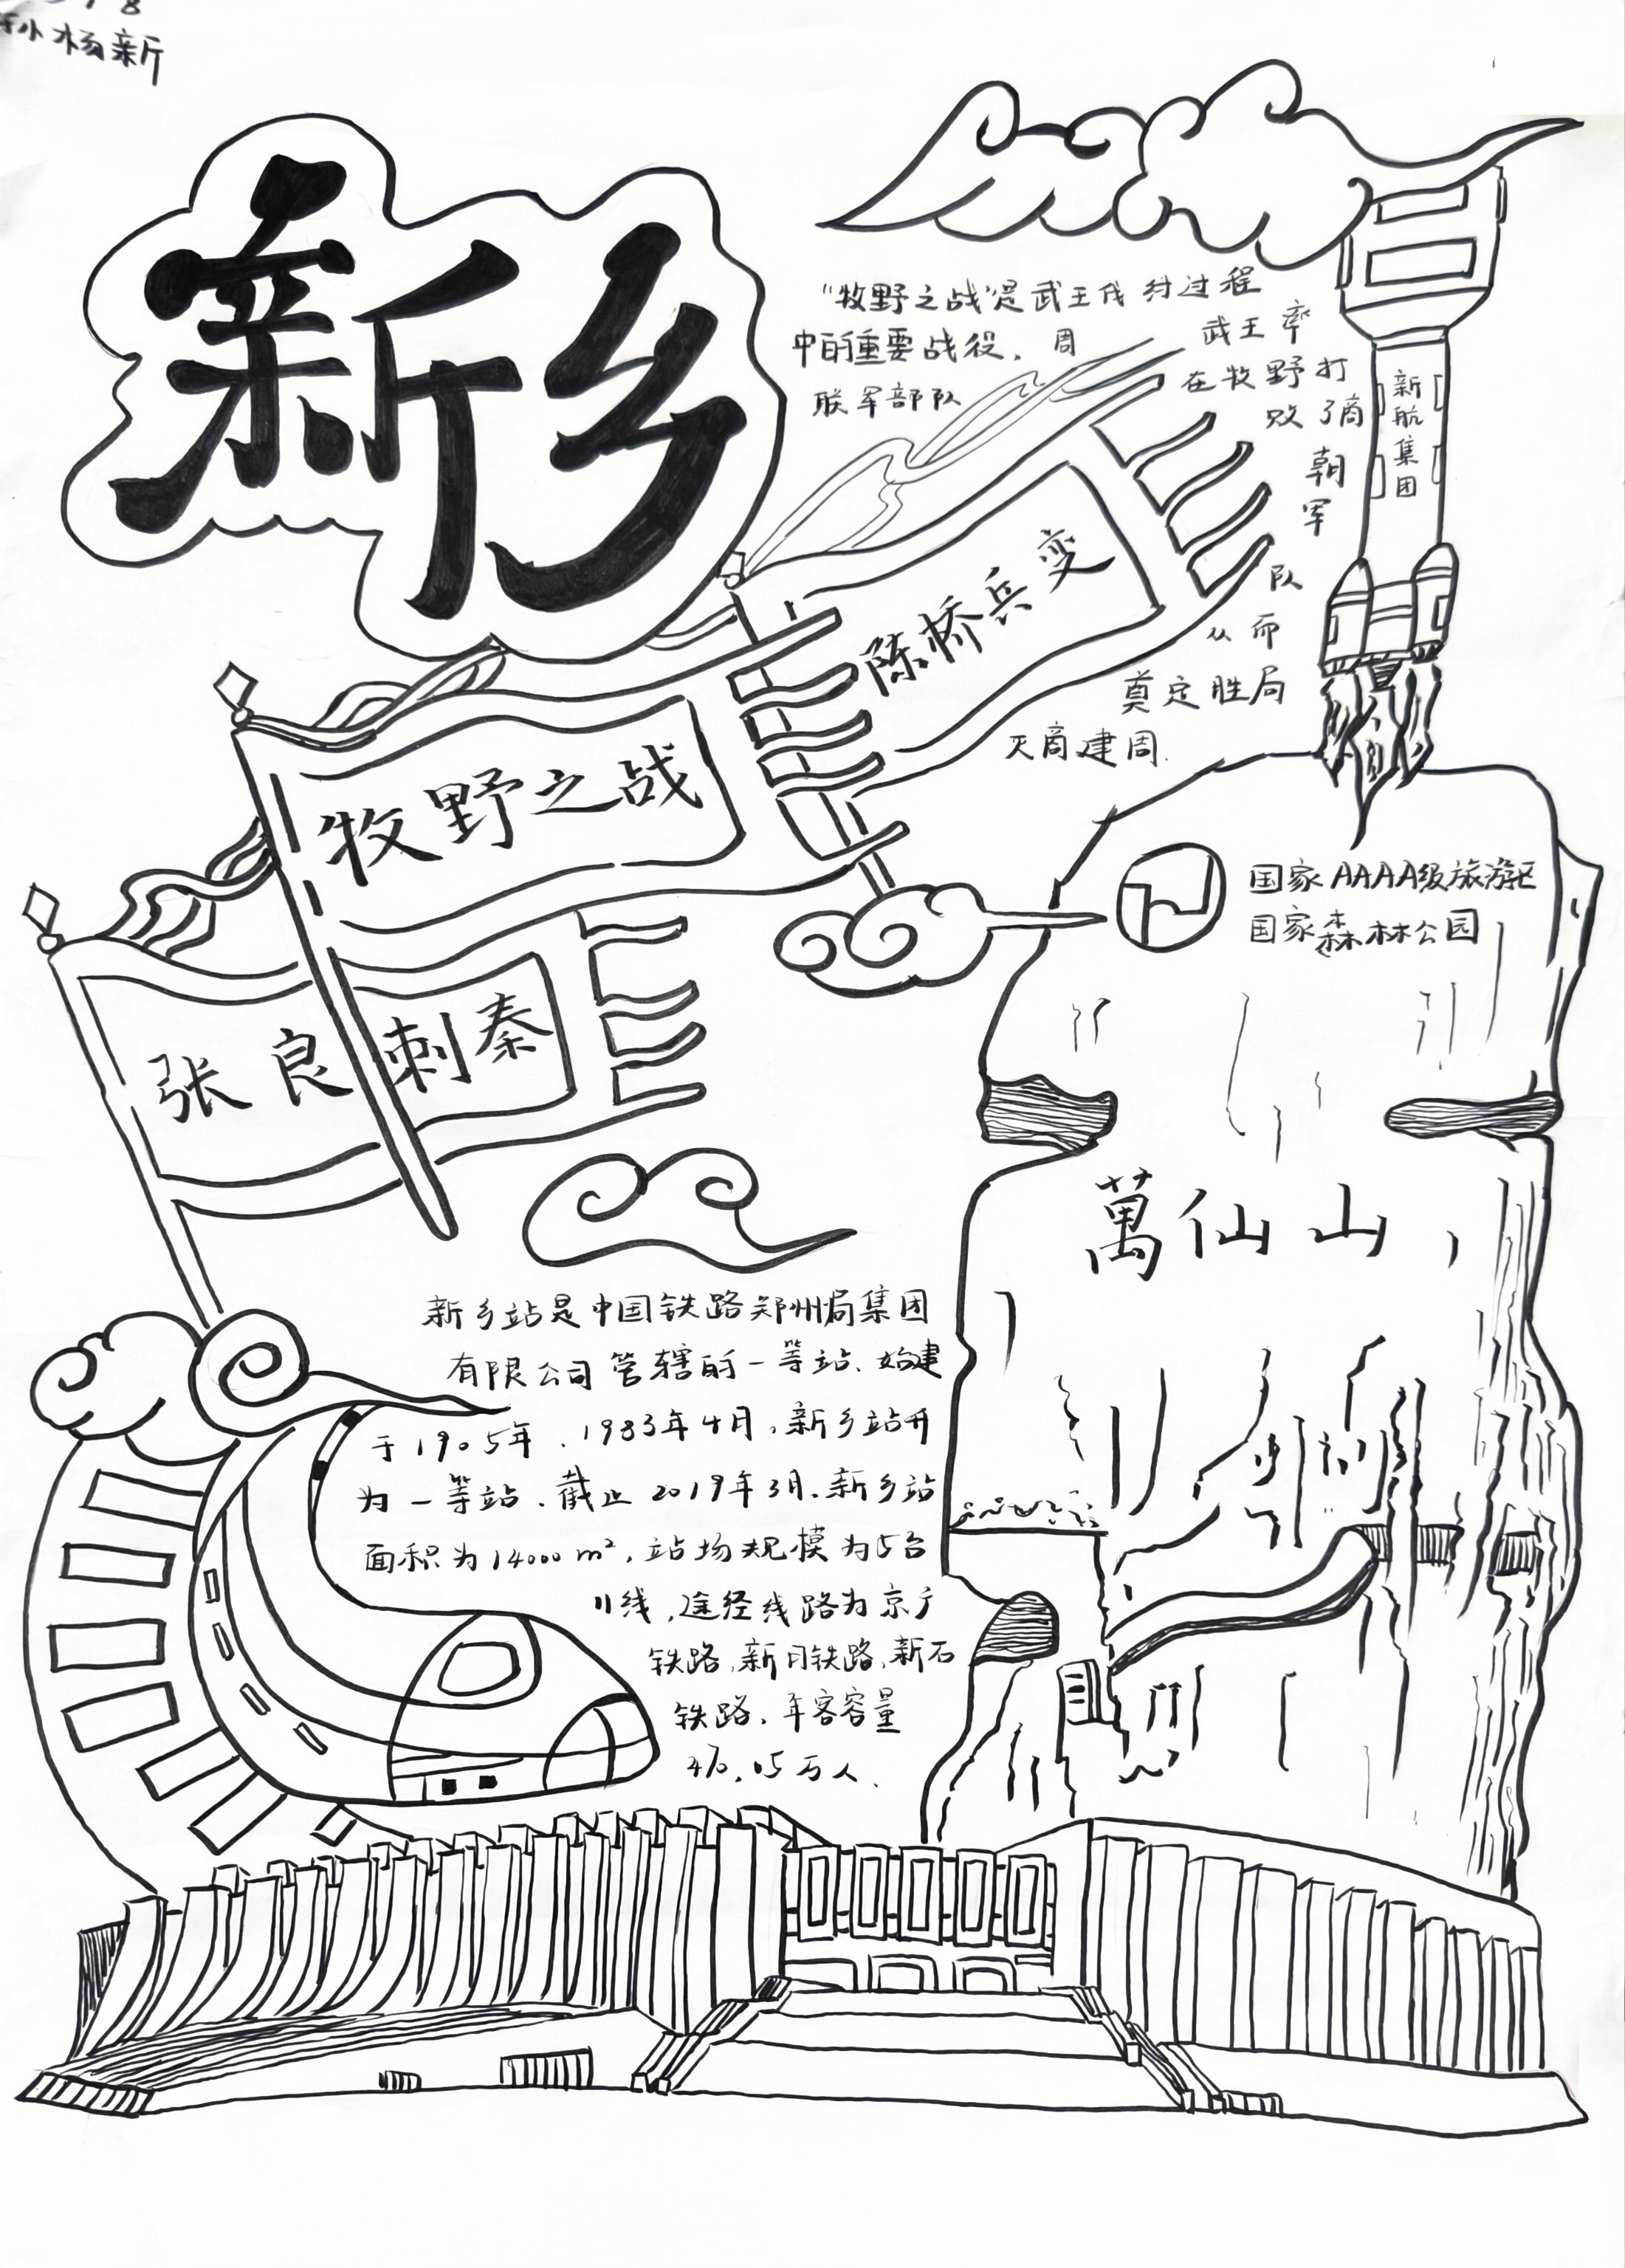 杨新
新乡
“牧野之战”是武王伐纣过程
中的重要战役，周 武王率
联军部队 在牧野打
败了商
朝
军
队
从而
奠定胜局
灭商建周.
新航集团
陈桥兵变
牧野之战
张良刺秦
国家AAAA级旅游区
国家森林公园
萬仙山
新乡站是中国铁路郑州局集团
有限公司管辖的一等站、始建
于1905年、1983年4月,新乡站升
为一等站、截止2019年3月、新乡站
面积为14000m²,站场规模为5台
11线,途经线路为京广
铁路、新月铁路、新石
铁路、年客容量
万人.